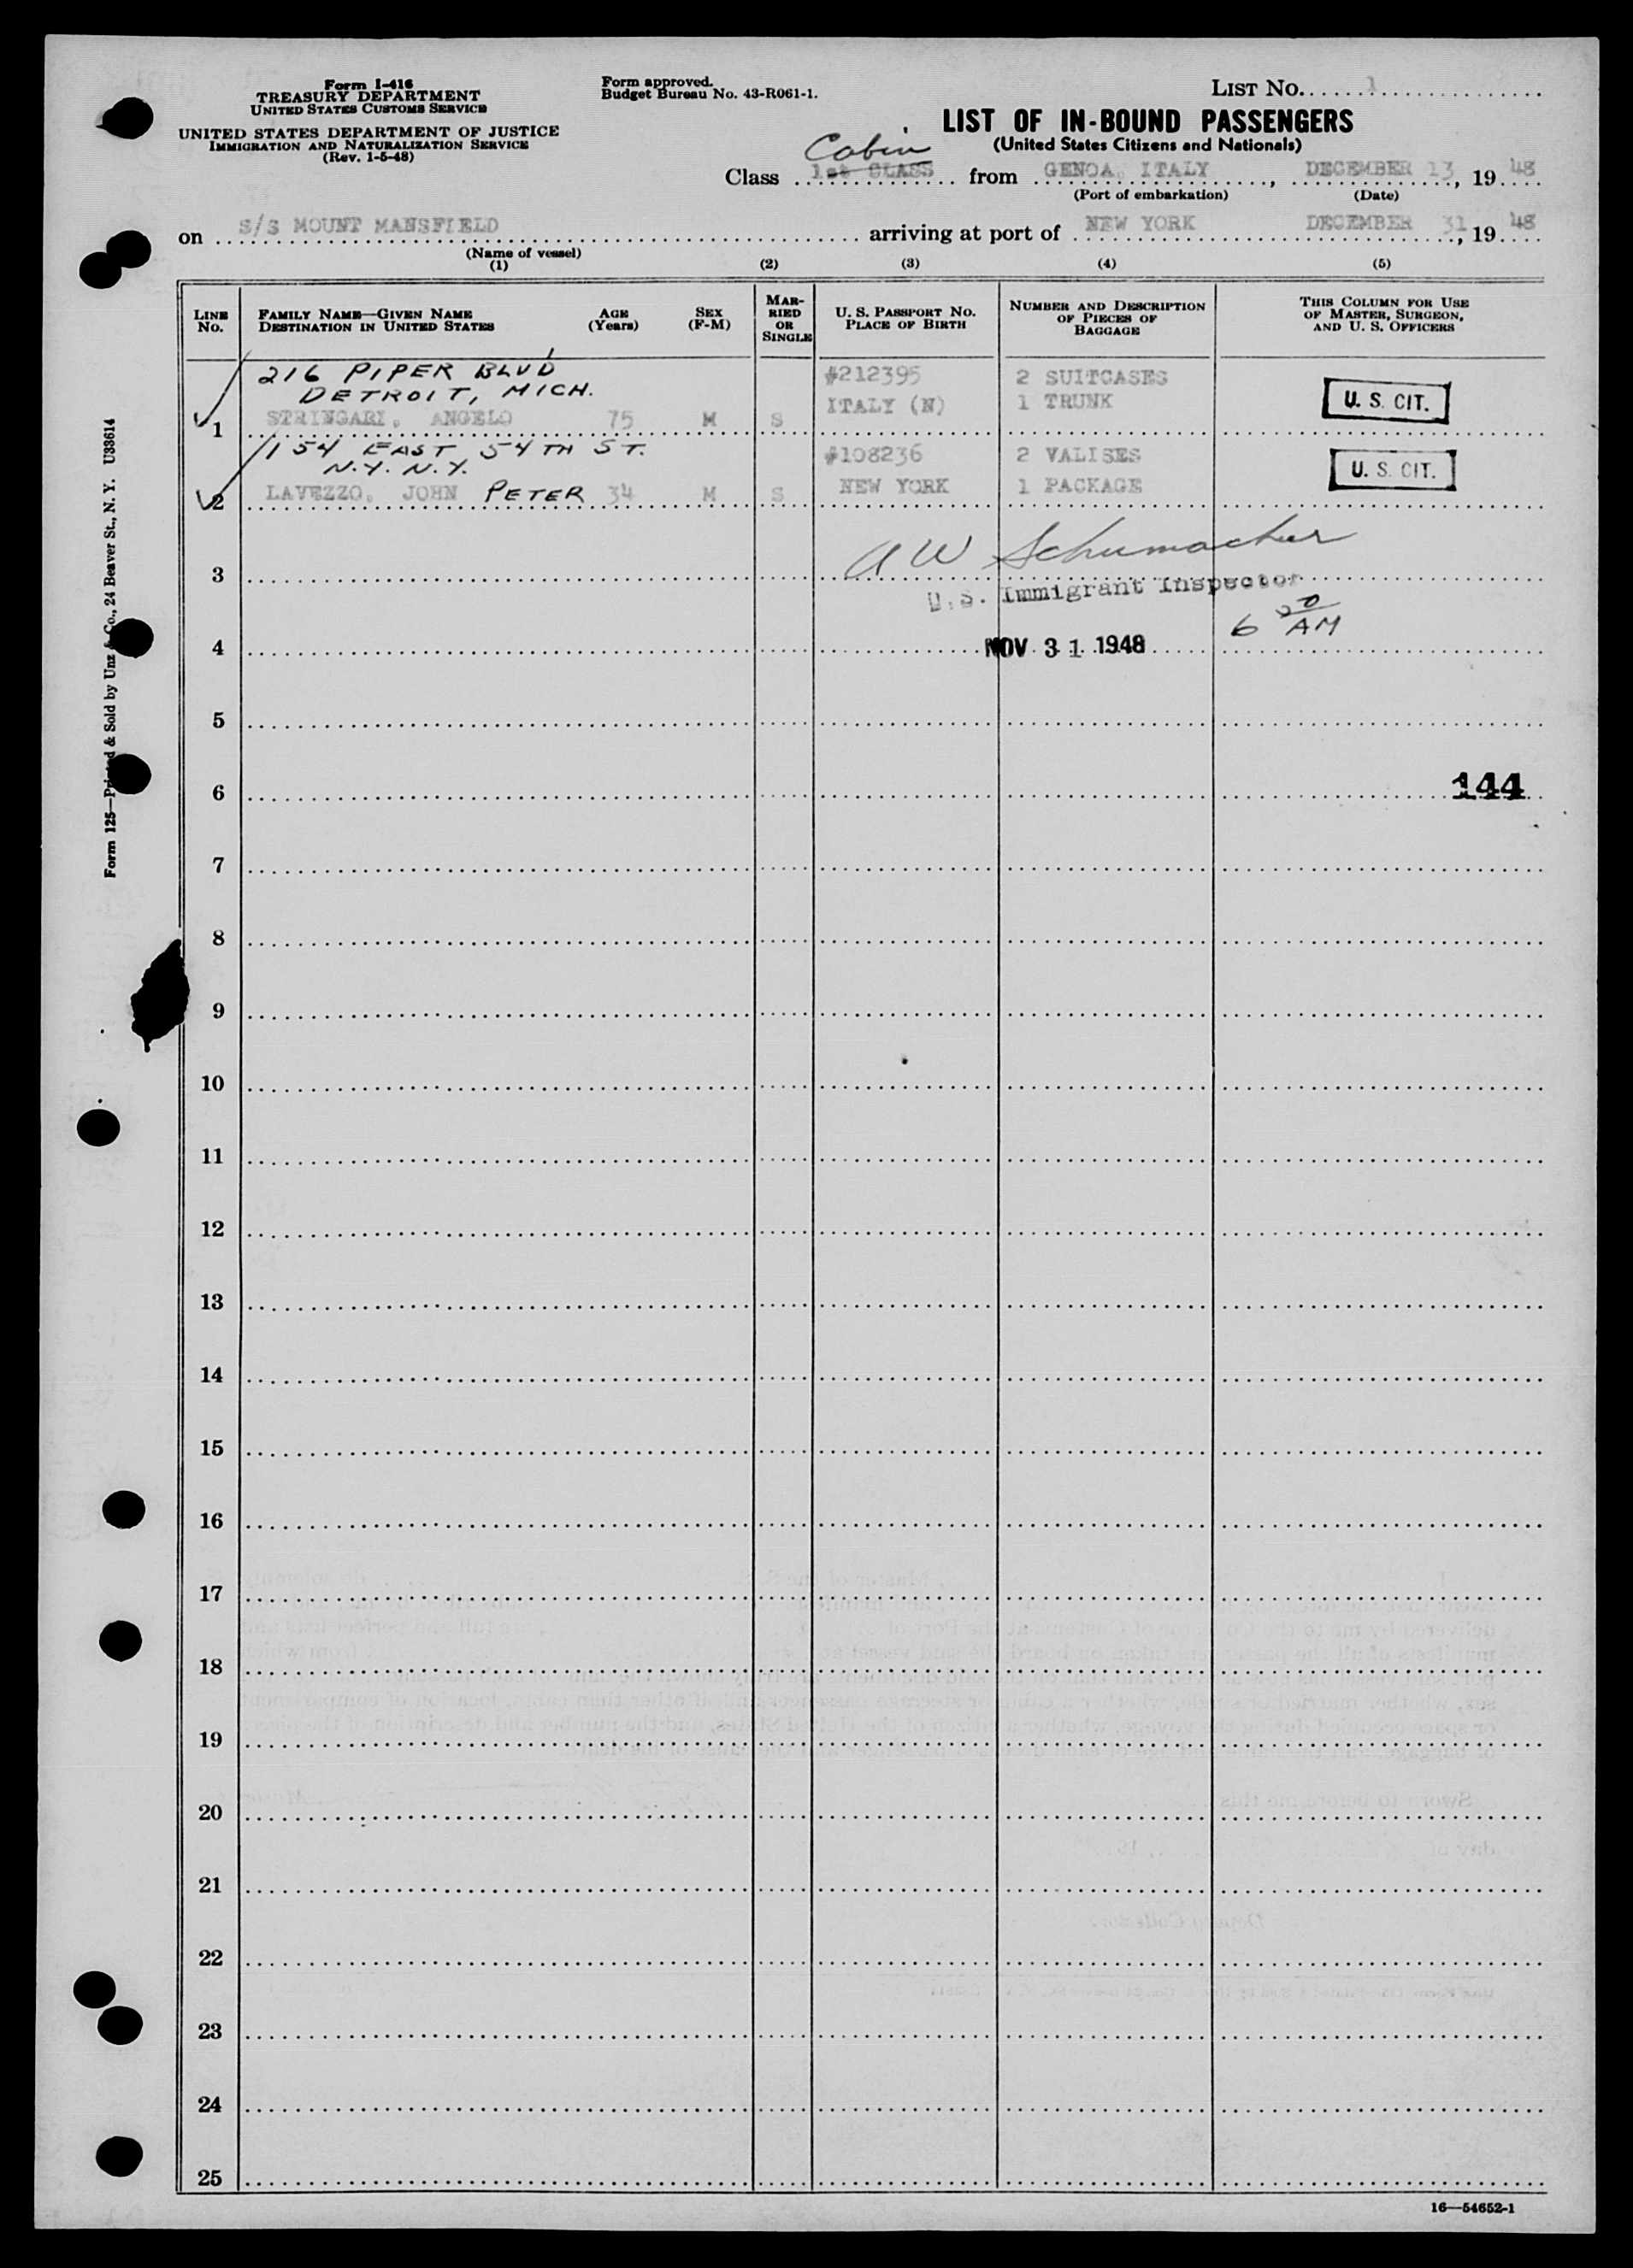 Form I-416
TREASURY DEPARTMENT
UNITED STATES CUSTOMS SERVICE
UNITED STATES DEPARTMENT OF JUSTICE
IMMIGRATION AND NATURALIZATION SERVICE
(Rev. 1-5-48)
Form approved.
Budget Bureau No. 43-R061-1.
LIST No. 1
LIST OF IN-BOUND PASSENGERS
(United States Citizens and Nationals)
Cabin
Class 1st CLASS from GENOA, ITALY, DECEMBER 13, 1948
(Port of embarkation) (Date)
on S/S MOUNT MANSFIELD arriving at port of NEW YORK DECEMBER 31, 1948
(Name of vessel)
(1) (2) (3) (4) (5)
LINE No. FAMILY NAME—GIVEN NAME DESTINATION IN UNITED STATES AGE (Years) SEX (F-M) MARRIED OR SINGLE U. S. PASSPORT No. PLACE OF BIRTH NUMBER AND DESCRIPTION OF PIECES OF BAGGAGE THIS COLUMN FOR USE OF MASTER, SURGEON, AND U. S. OFFICERS
216 PIPER BLVD #212395 2 SUITCASES
DETROIT, MICH. ITALY (N) 1 TRUNK U. S. CIT.
1 STRINGARI, ANGELO 75 M S
154 EAST 54TH ST. #108236 2 VALISES
N.Y. N.Y. U. S. CIT.
2 LAVEZZO, JOHN PETER 34 M S NEW YORK 1 PACKAGE
A W Schumacher
3
U.S. Immigrant Inspector
6 20 AM
4 NOV 31 1948
5
6 144
7
8
9
10
11
12
13
14
15
16
17
18
19
20
21
22
23
24
25
16—54652-1
Form 125—Printed & Sold by Unz & Co., 24 Beaver St., N. Y. U33614